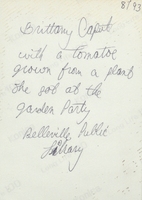 8/93
Brittany Caput
with a tomatoe
grown from a plant
she got at the
garden Party
Belleville Public
Library